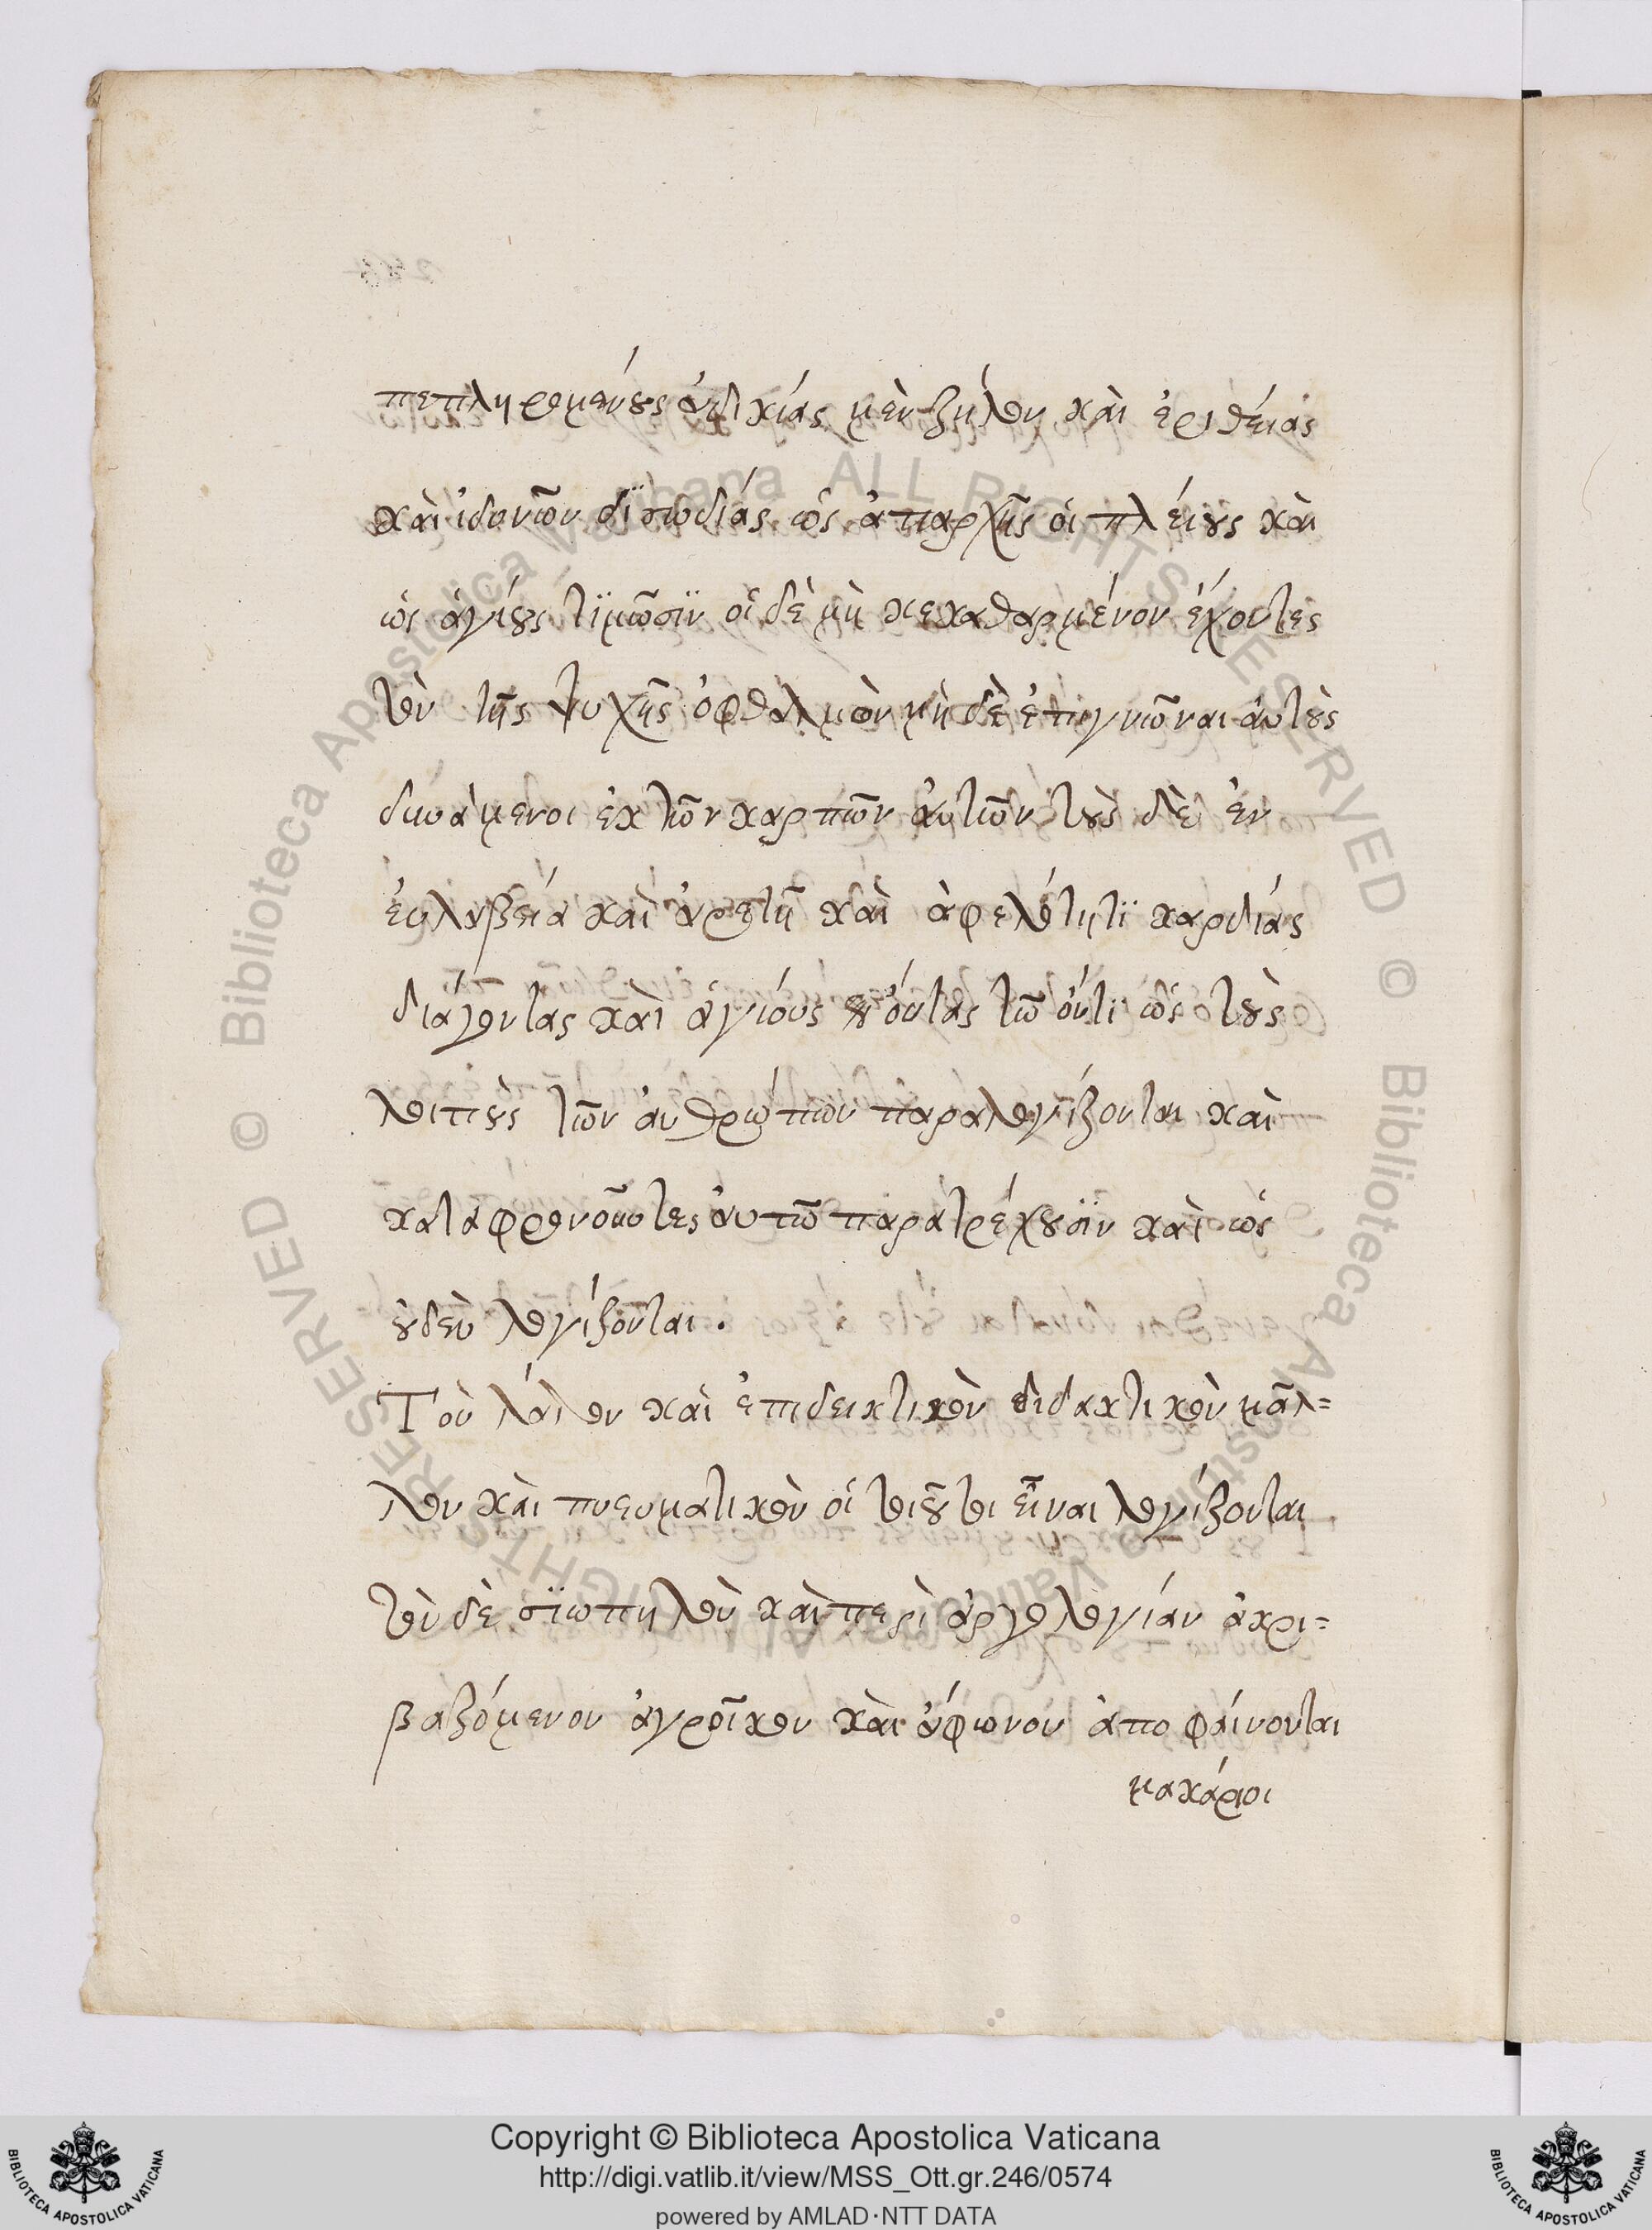 πεπληρομένους ἀδικίας μὲν ζήλου καὶ ἐριθέιας
καὶ ἰδονῶν δϊσωδίας ὡς ἀπαρχῆς οἱ πλείους καὶ
ὡς ἁγίους τϊμῶσϊν οἱ δὲ μὴ κεκαθαρμένον ἔχοντες
τὸν τῆς ψυχῆς ὀφθαλμὸν μὴ δὲ ἐπιγνῶναι ἀυτοὺς
δυνάμενοι ἐκ τῶν καρπῶν ἀυτῶν τοὺς δὲ ἐν
ἐυλαβεία καὶ ἀρετῆ καὶ ἀφελότητϊ καρδίας
διάγοντας καὶ ἁγιόυς ὄντας τῶ ὄντϊ ὡς τοὺς
λοιποὺς τῶν ἀνθρώπων παραλογίζονται καὶ
καταφρονοῦντες ἀυτῶ παρατρέχουσϊν καὶ ὡς
οὐδὲν λογίζονται.
Τὸν λάλον καὶ ἐπιδεικτικὸν διδακτικὸν μᾶλ=
λον καὶ πνευματικὸν οἱ τοιοῦτοι εἶναι λογίζονται
τὸν δὲ σϊωπηλὸν καὶ περὶ ἀργολογίαν ἀκρι=
βαζόμενον ἀγροῖκον καὶ ἄφωνον ἀποφάινονται
μακάριοι
Copyright © Biblioteca Apostolica Vaticana
http://digi.vatlib.it/view/MSS_Ott.gr.246/0574
powered by AMLAD·NTT DATA